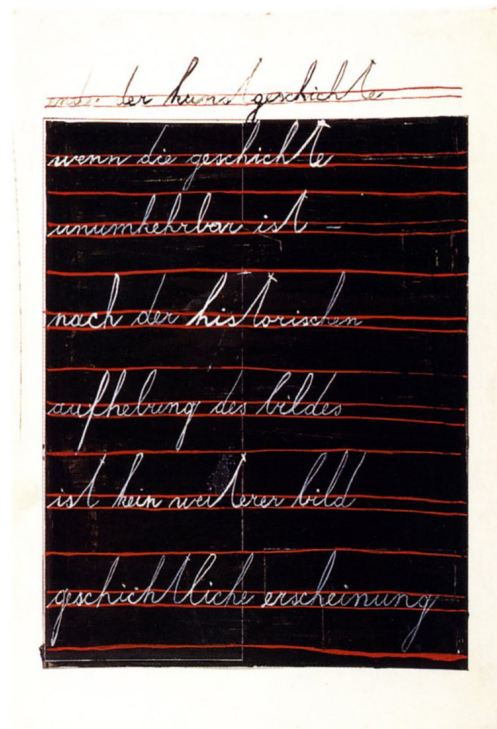 ende der kunstgeschichte
wenn die geschichte
unumkehrbar ist –
nach der historischen
aufhebung des bildes
ist kein weiterer bild
geschichtliche erscheinung